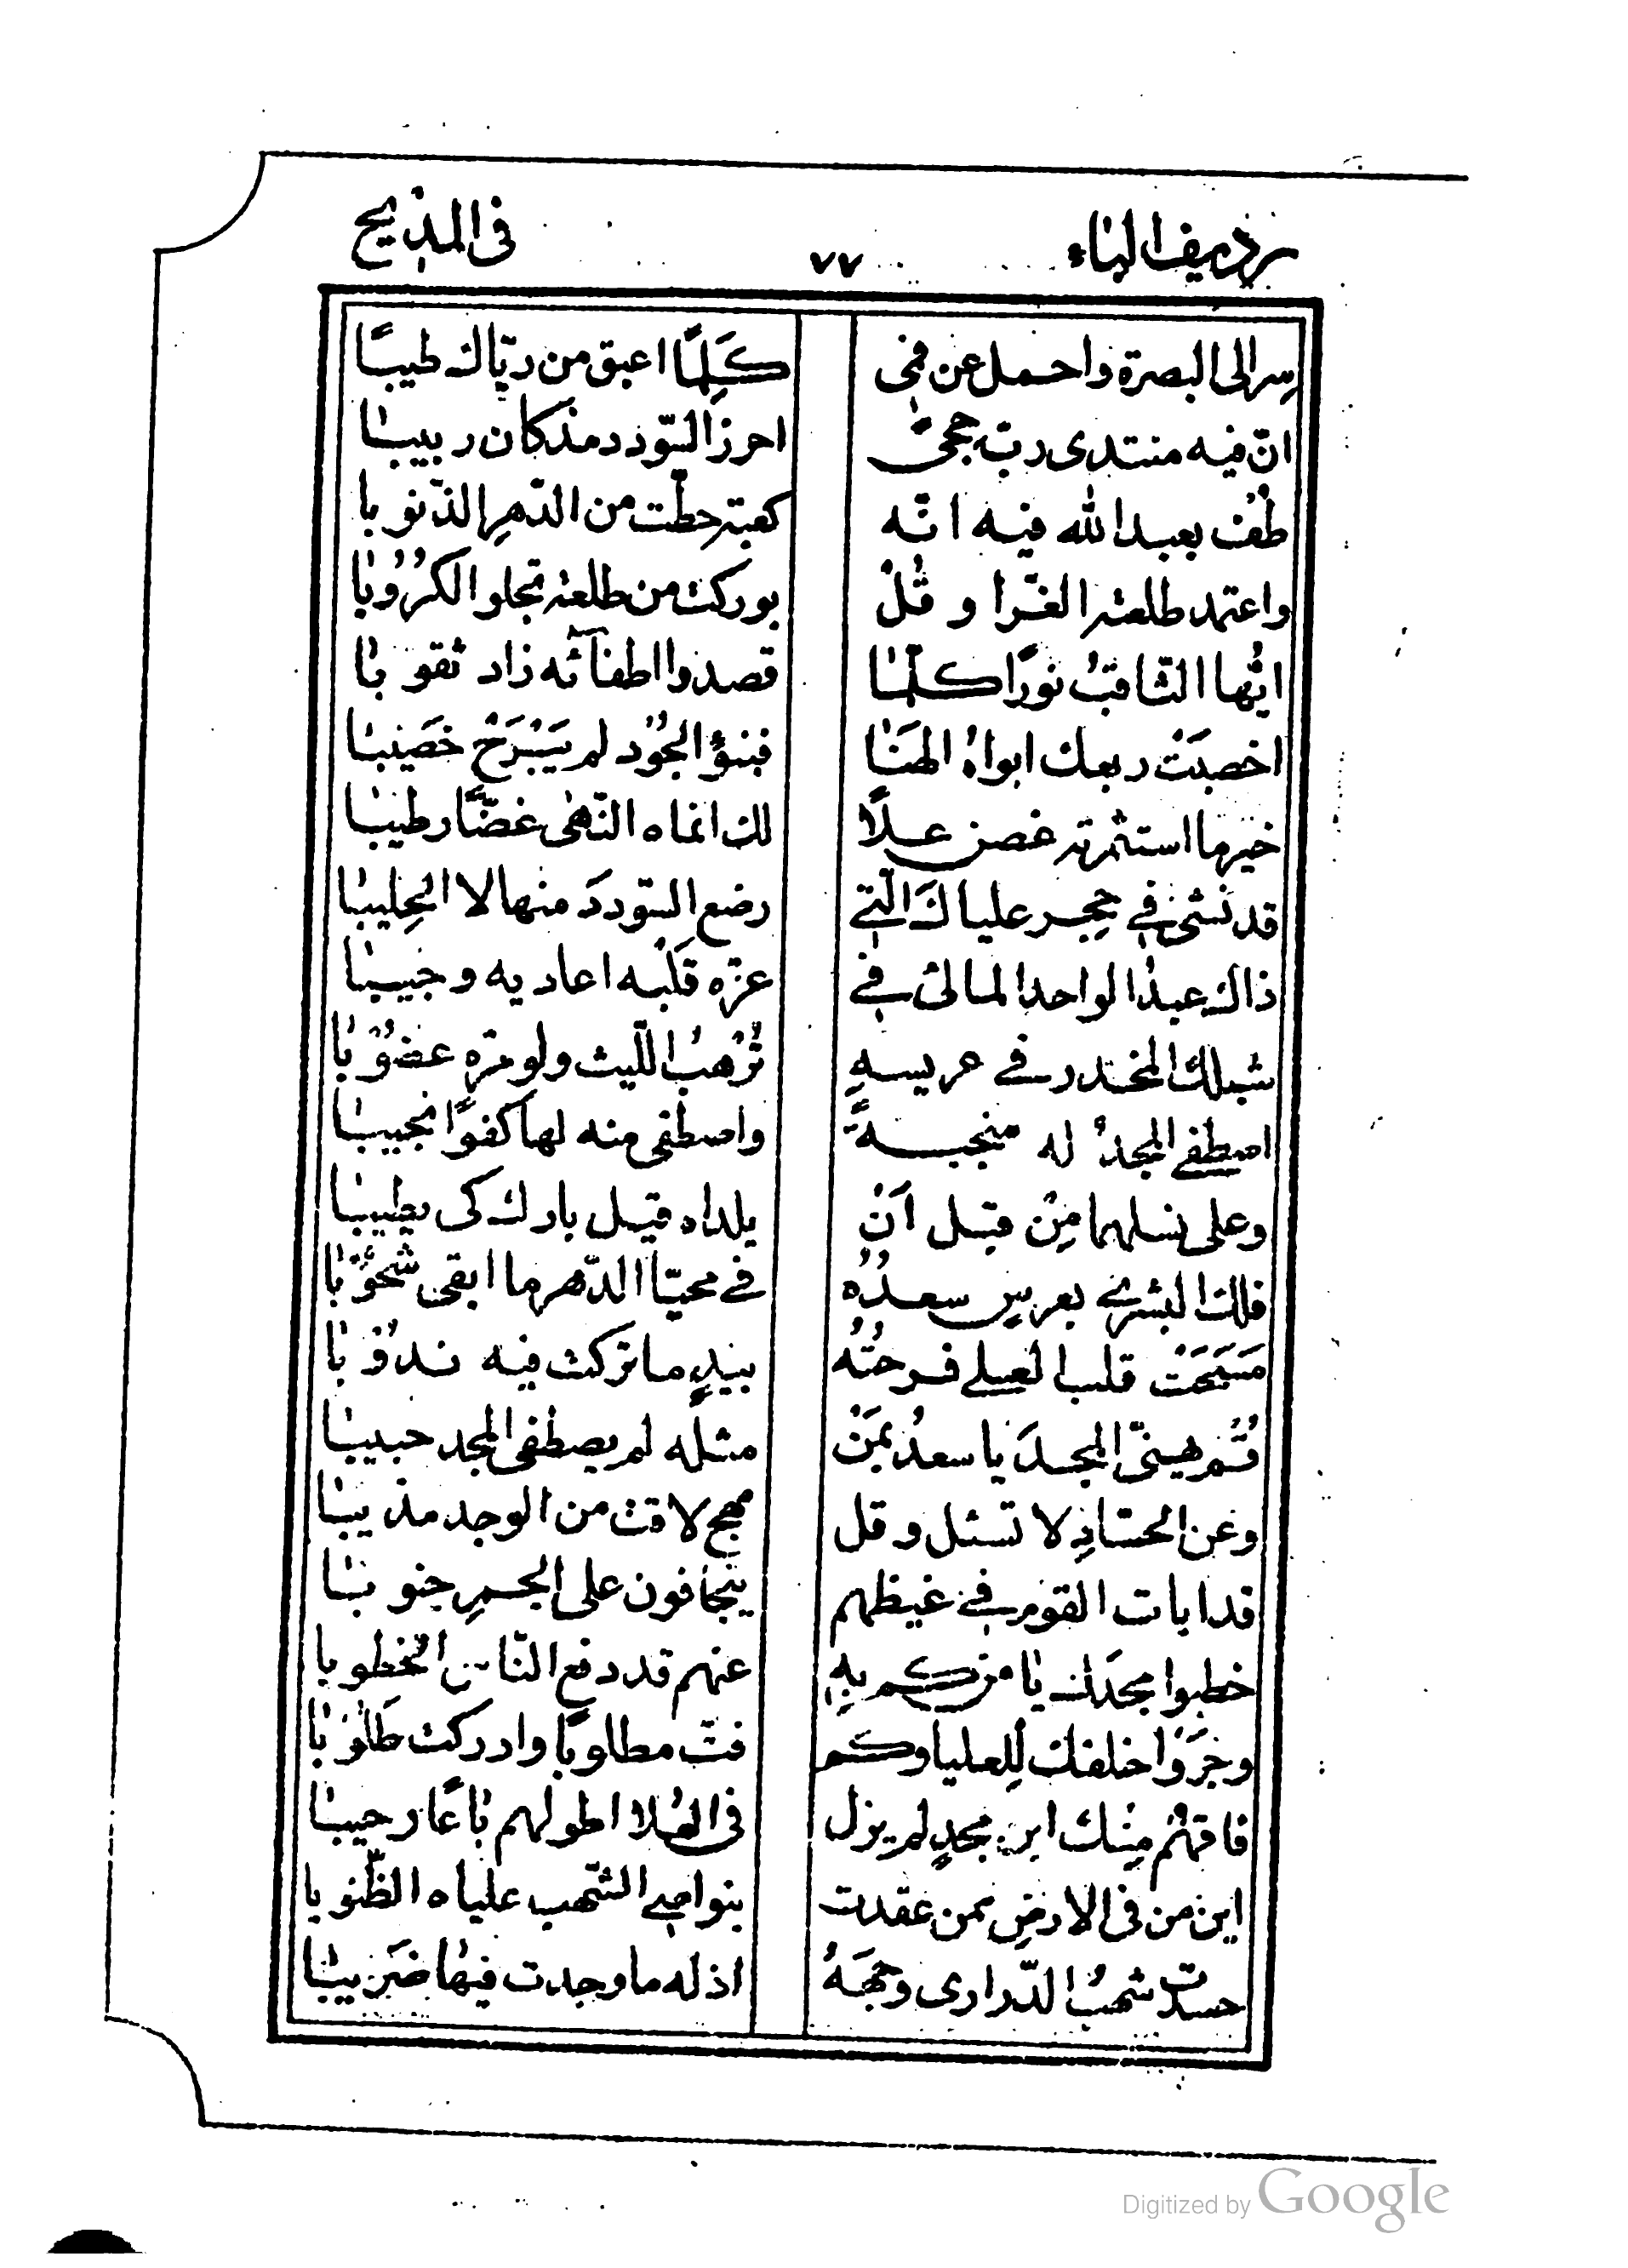 رديف الباء ٧٧ فى المديح
سر الى البصرة واحمل عن فمى كَلِمًا اعبق من ريّاك طيبًا
انّ فيه منتدى ربّ حجىً احرز السّودد مذكان ربيبا
طُف بعبد الله فيه انّه كعبة حطّت من الدّهرِ الذّنوبا
واعتمد طلعته الغرّا وقُلْ بوركت من طلعة تجلو الكرُوُبا
ايّها الثّاقبُ نورًا كلّما قصدوا اطفائه زاد ثقوبا
اخصبَتْ ربعك ابواهُ الهَنا فبنوُّ الجُوُد لم يَبْرَحْ خَصَيبا
خير ما استثمرته غصن علًا لك انماه النّهى غضًّا رطيبا
قد نشئ فى حِجر علياكَ الّتى رضع السّوددَ منها لا الحليبا
ذاك عبدُ الواحد المالئ فى عزّه قَلْبه اعاديه وجيبا
شبلك المخدر فى عريسهِ تُرْهبُ اللّيث ولو مرّه غضوُبا
اصطفى المجدُ له منجبةً واصطفى منه لها كفوًا نجيبا
وعلى نسلهما مِنْ قبل اَنْ يلداه قيل بارك كى يطيبا
فلك البشرى بعرسٍ سعدُهُ فى محيّا الدّهر ما ابقى شحُوُبا
مَسَحَتْ قلب العلى فرحتُهُ بيدٍ ما تركت فيه ندُوُبا
قُمْ هنىّ المجدَ يا سعدُ بمَنْ مثله لم يصطفى المجد حبيبا
وعن الحسّادِ لا تسئل وقل مهج لاقت من الوجد مذيبا
قد ابات القوم فى غيظهم يتجافون على الجمرِ جنوبا
خطبوا مجدك يا من كم بهِ عنهم قد دفع النّاس الخطوبا
وجَرَوْا خلفك لِلعليا وكم فتّ مطلوبًا وادركت طَلُوُبا
فاقهُم مِنك ابن مجدٍ لم يزل فى العُلا اطولهم باعًا رحيبا
اين من فى الارضِ ممن عقدت بنواصى الشّهب علياه الظّنوبا
حسدت شهبُ الدّرارى وجهَهُ اذ له ما وجدت فيها ضَريبا
Digitized by Google